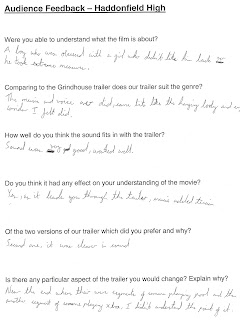 Audience Feedback – Haddonfield High
Were you able to understand what the film is about?
A boy who was obsessed with a girl who didn't like him back so
he took extreme measures.
Comparing to the Grindhouse trailer does our trailer suit the genre?
The music and voice over did, some bits like the hanging body and
I felt did.
How well do you think the sound fits in with the trailer?
Sound was good, worked well.
Do you think it had any effect on your understanding of the movie?
Yes, as it leads you through the trailer, music added tension
Of the two versions of our trailer which did you prefer and why?
Second one, it was clearer in sound
Is there any particular aspect of the trailer you would change? Explain why?
Near the end when there were segments of someone playing pool and then
another segment of someone playing xbox. I didn't understand the point of it.